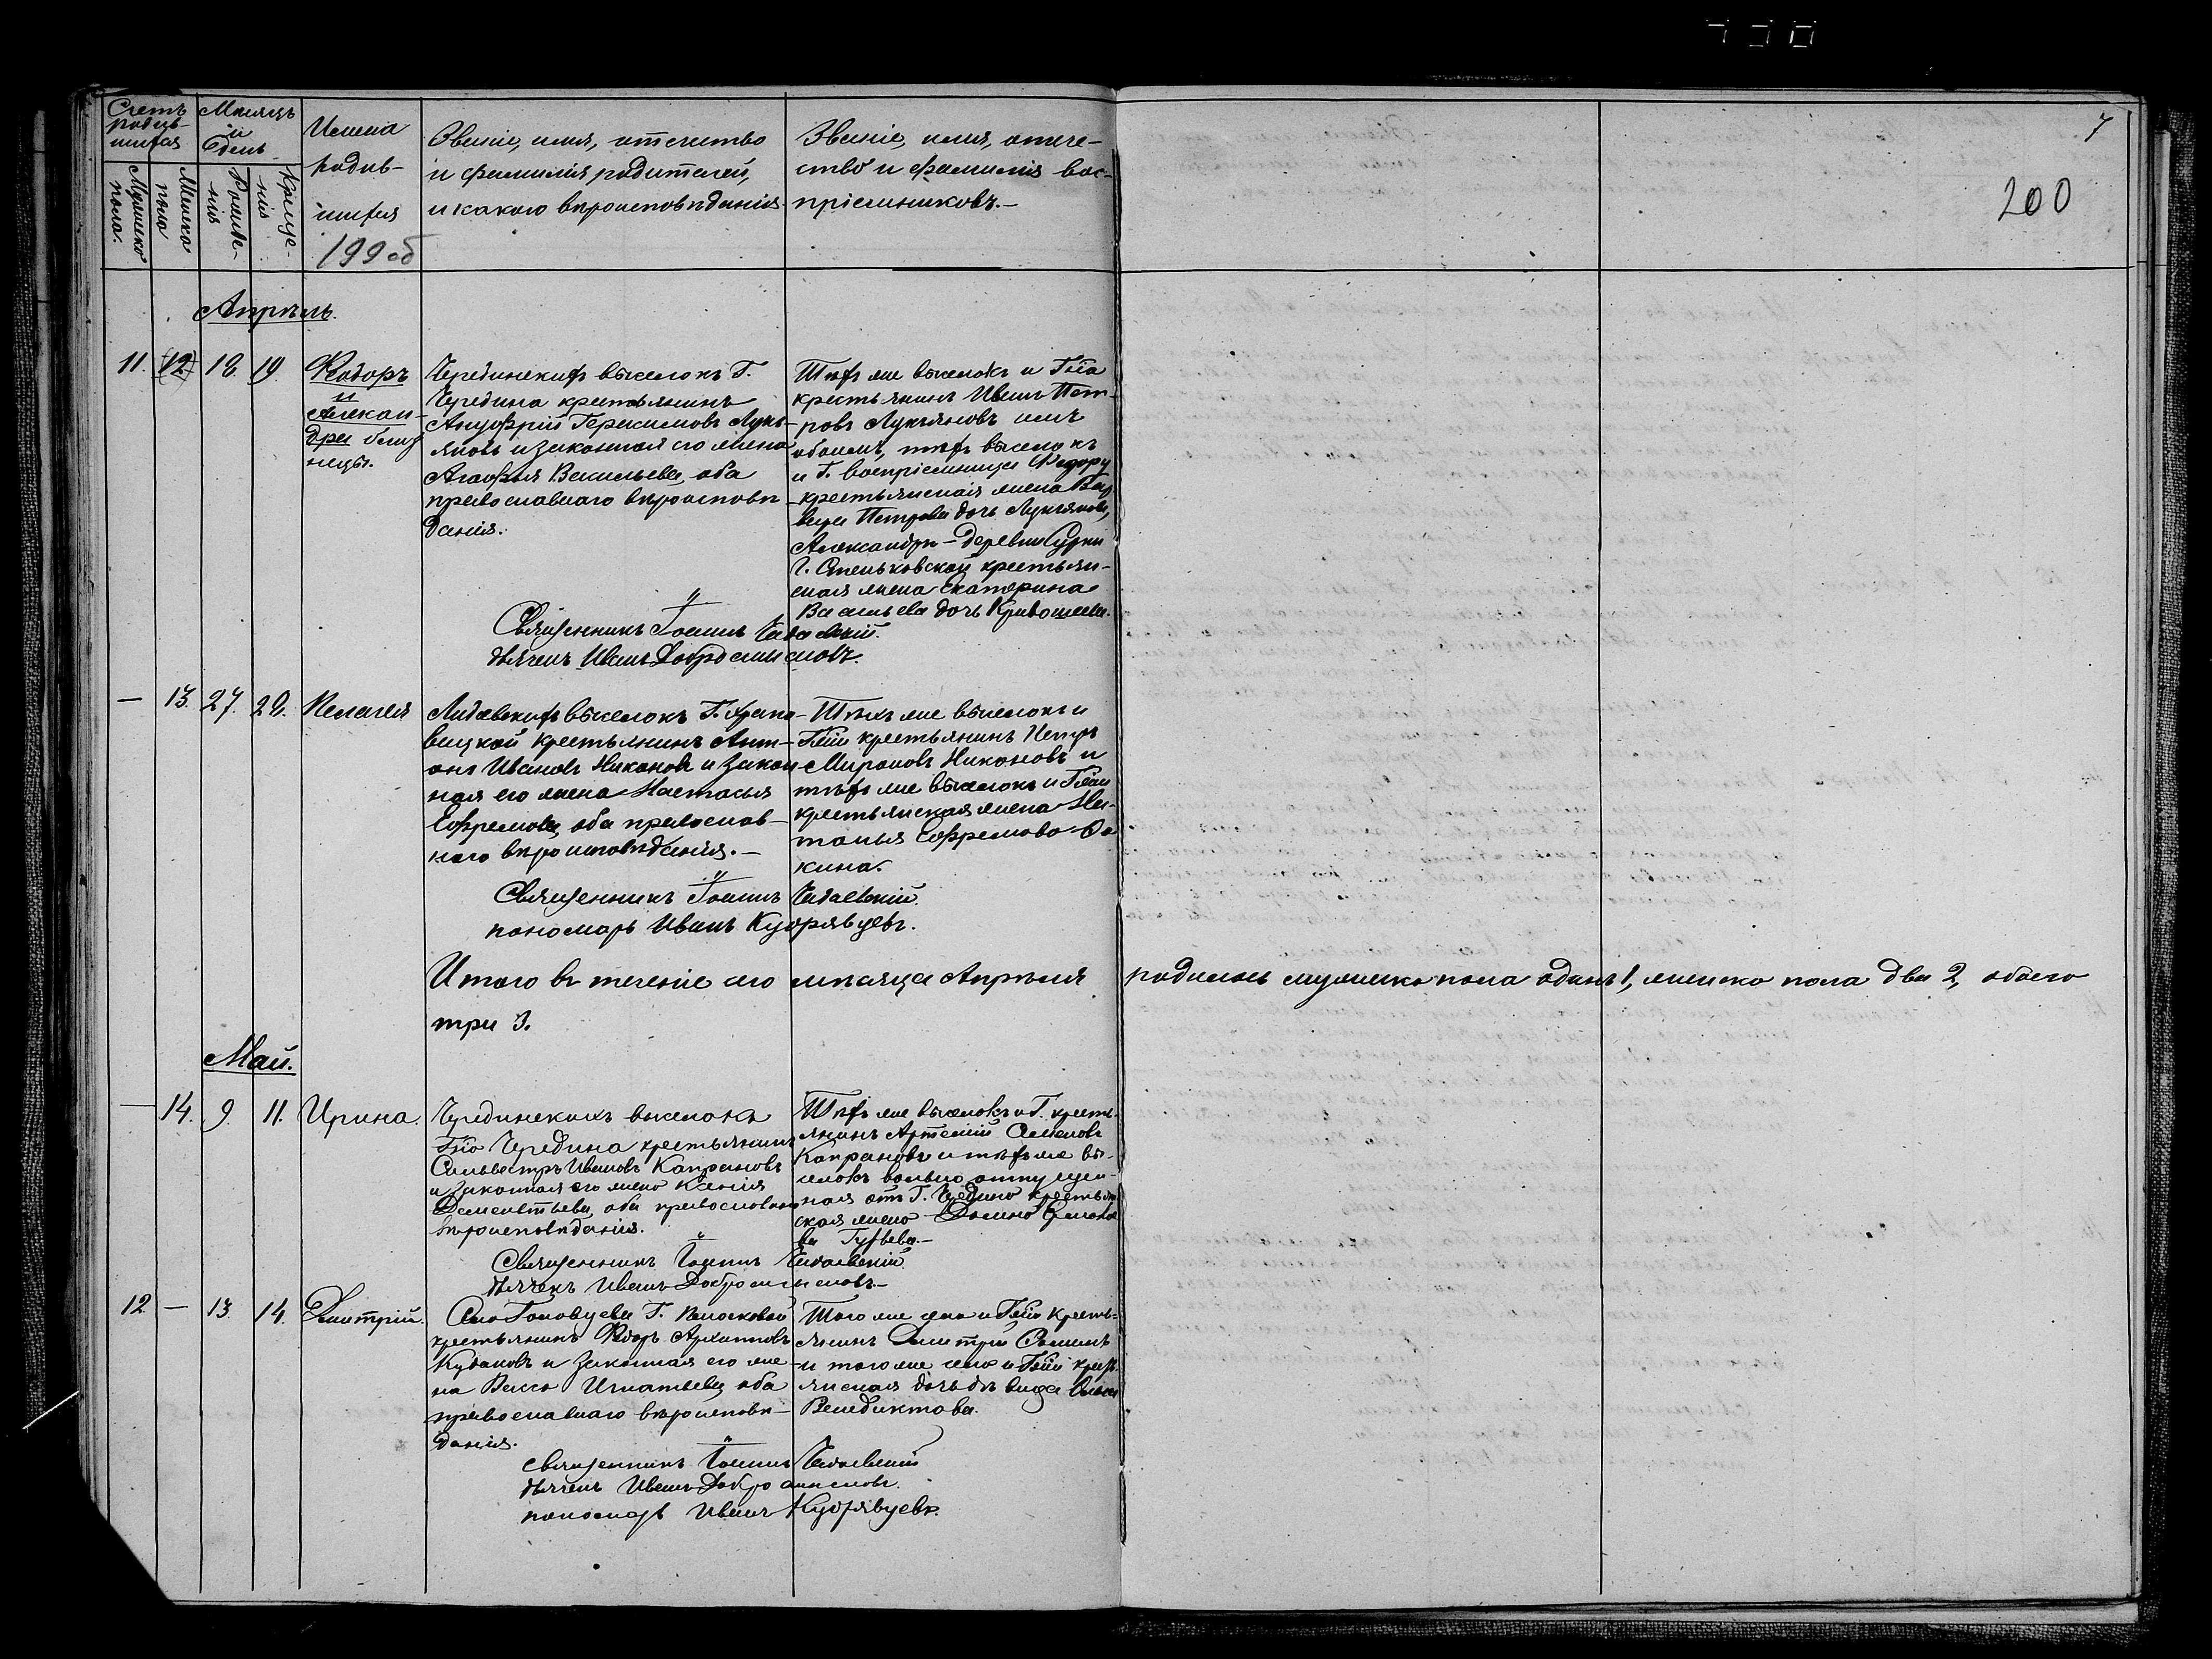 7
200
Счетъ родив-шихся
Мѣсяцъ и день
Имена родив-шихся
Званіе, имя, отчество
и фамилія родителей,
и какого вѣроисповѣданія.
Званіе, имя, отче-
ство и фамилія вос-
пріемниковъ.—
Мужеска пола.
Женска пола
Рожде-нія
Креще-нія
199 об
Апрѣль.
11. 12. 18. 19.
Ѳеодоръ
и
Алексан-
дра близ
нецы.
Черединскихъ выселокъ Г.
Чередина крестьянинъ
Ануфрій Герасимовъ Лукь-
яновъ и законная его жена
Агафья Васильева, оба
православнаго вѣроисповѣ
данія.
Тѣхъ же выселокъ и Гна
крестьянинъ Иванъ Пет-
ровъ Лукьяновъ имъ
обоимъ, тѣхъ выселокъ
и Г. воспріемница Ѳедору
крестьянская жена
Петрова дочь Лукьянова,
Александрѣ — деревни
Г. крестьян-
ская жена Екатерина
Васильева дочь Кривошеева.
Священникъ Іоаннъ
дьячекъ Иванъ Добросмысловъ.
— 13. 27. 29. Пелагея
выселокъ Г. Храпо-
вицкой крестьянинъ Ант-
онъ Ивановъ Никоновъ и закон
ная его жена Настасья
Ефремова, оба православ-
наго вѣроисповѣданія.—
Тѣхъ же выселокъ и
Гжи крестьянинъ Петръ
Мироновъ Никоновъ и
тѣхъ же выселокъ и Гжи
крестьянская жена На-
талья Ефремова
кина.
Священникъ Іоаннъ
пономарь Иванъ Кудрявцевъ.
Итого въ теченіе сего мѣсяца Апрѣля родилось мужеска пола одинъ 1, женска пола два 2, обоего
три 3.
Май.
— 14. 9. 11. Ирина.
Черединскихъ выселокъ
Гна Чередина крестьянинъ
Сильвестръ Ивановъ Капрановъ
и законная его жена Ксенія
Дементьева, оба православнаго
вѣроисповѣданія.
Тѣхъ же выселокъ и Г. кресть-
янинъ Артемій Семеновъ
Капрановъ и тѣхъ же вы-
селокъ вольно отпущен-
ная отъ Г. Чередина крестьян
ская жена Домна
ва Гурьева.—
Священникъ Іоаннъ
дьячекъ Иванъ Добросмысловъ.—
12 — 13. 14. Димитрій.
Села Головцева Г.
крестьянинъ Ѳедоръ Архиповъ
Кудаковъ и законная его же-
на Васса Игнатьева, оба
православнаго вѣроисповѣ-
данія.
Того же села и Гжи кресть-
янинъ Дмитрій
и того же села и Гжи крест
янская дочь дѣвица
Венедиктова.
священникъ Іоаннъ
дьячекъ Иванъ Добросмысловъ.
пономарь Иванъ Кудрявцевъ.